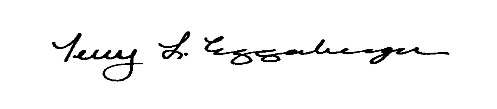 Terry L. Eggenberger